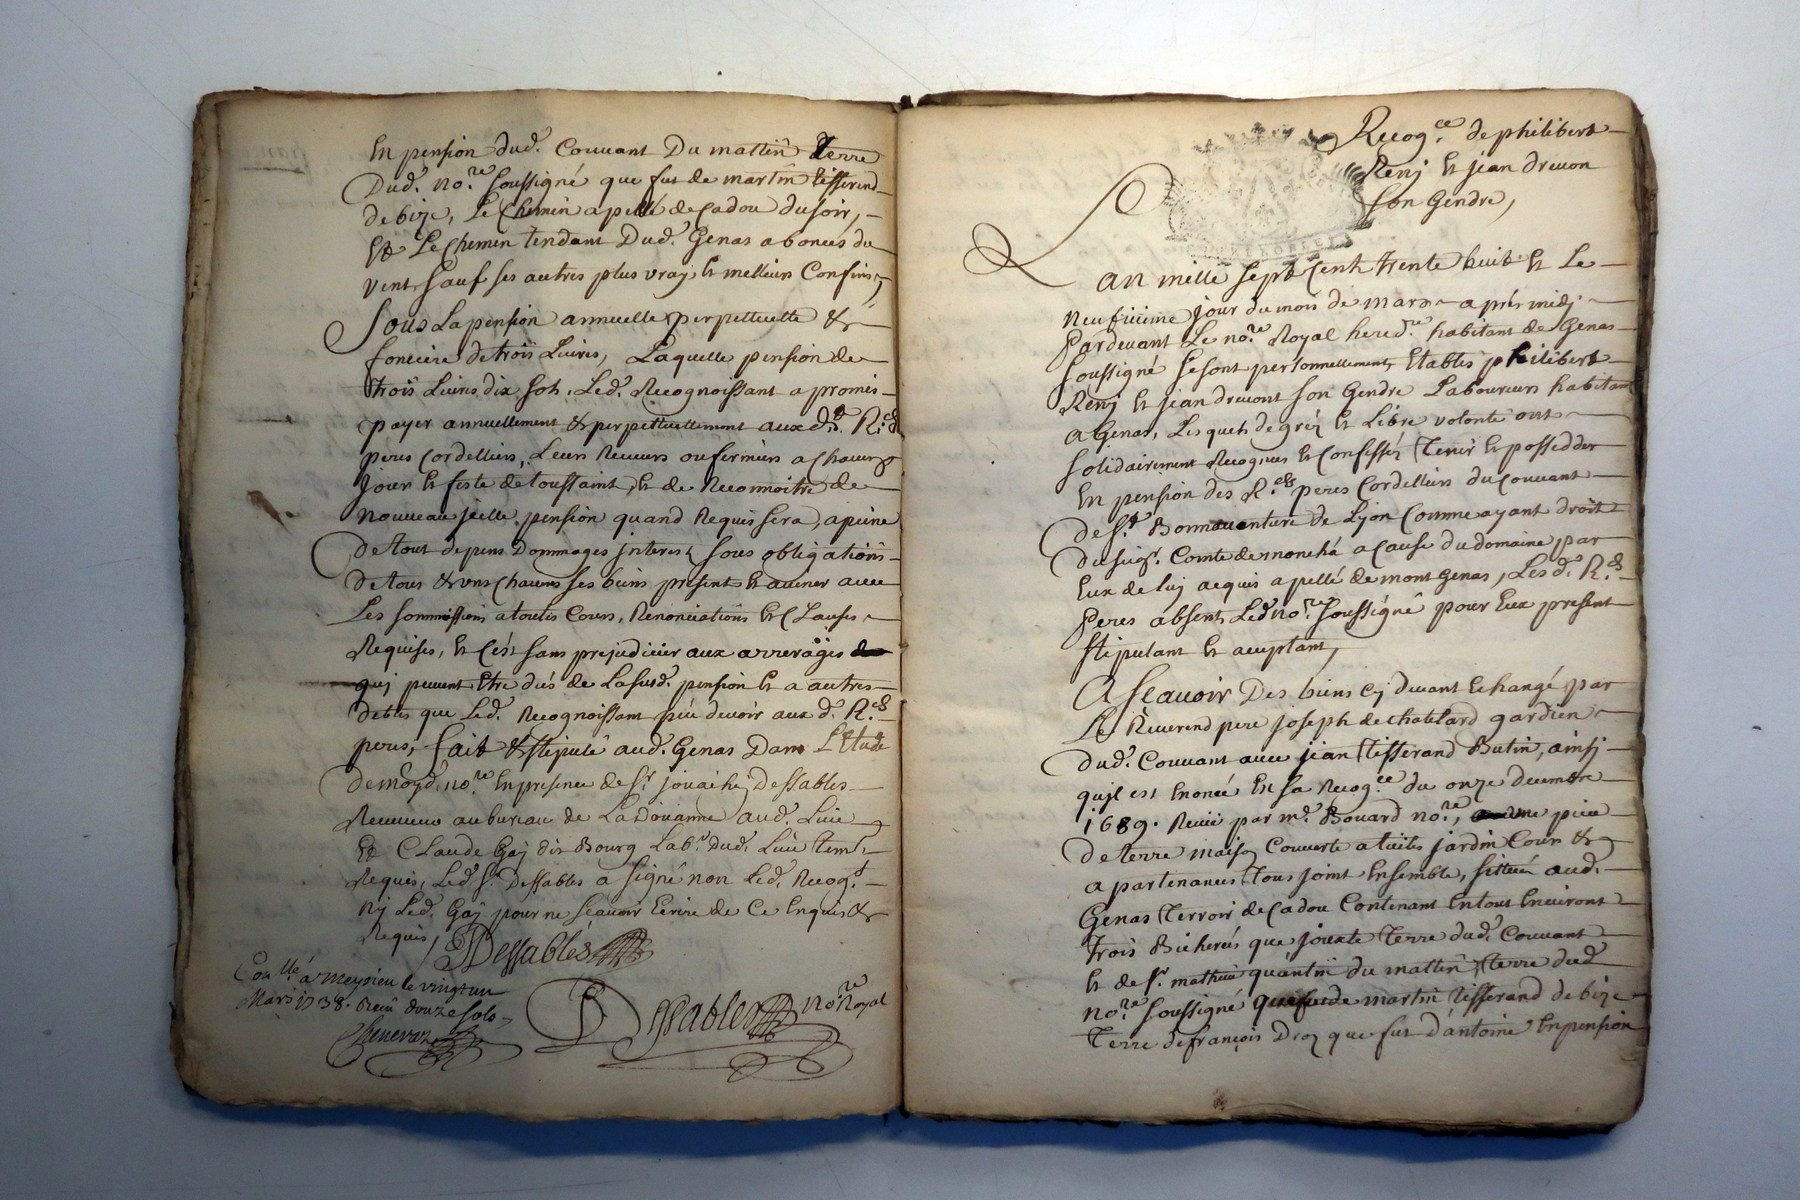 En pension dud. Couuant Du mattin terre
Dud. no.re soussigné que fut de martin tisserend
de bize, Le Chemin apellé de Cadou du soir,
Et Le Chemin tendant Dud. Genas a bonces du
vent, sauf ses autres plus vray et melleurs Confins,
Sous La pension annuelle perpettuelle &
fonciere de trois Liures, Laquelle pension de
trois Liures dix sols, Led. Recognoissant a promis
payer annuellement & perpettuellement aux d.d. R.ds
peres Cordelliers, Leurs Receueurs ou fermiers a chacun
jour et feste de toussaint, et de Reconnoitre de
nouueau jcelle pension quand Requis sera, a peine
De tout depens Dommages jnterest, sous obligations
De tous & uns chacuns ses biens present et auenir auec
Les sommissions a toutes Cours, Renonciations et Clauses
Requises, et c'est sans prejudicier aux arrerages
quj peuuent Etre dus de La susd. pension et a autres
debtes que Led. Recognoissant peu deuoir aux d. R.ds
peres, fait & stipulé aud. Genas Dans L'etude
De moyd. no.re En presence de S.r Dessables
Receueur au bureau de La doüanne aud. Lieu
Et Claude Gaj dit Bourg Lab.r Dud. Lieu tem.
Requis, Led. S.r Dessables a signé non Led. Recog.t
Nj Led. Gaÿ pour ne scauoir Ecrire de Ce Enquis &
Requis,
Dessables
Con.llé a Meyzieu le vingt un
Mars 1738. Receu douze sols
Cheneuaz
Dessables no.re Royal
Recog.ce de philibert
Renj et jean dreuon
son Gendre,
L'an mille sept Cent trente huit et Le
neufiieme jour du mois de mars apres midj
Pardeuant Le no.re Royal hered.re habitant de Genas
soussigné se sont personnellement Etablis philibert
Renj et jean dreuont son Gendre Laboureurs habitant
a Genas, Lesquels de gréz et Libre volonté ont
solidairement Recognus et Confessé Tenir et possedder
En pension des R.ds peres Cordelliers du Couuant
De S.t Bonnauenture de Lyon Comme ayant droit
du seig.r Comte de moncha a Cause du domaine par
Eux de luj acquis apellé de mont Genas, Les d. R.ds
Peres absents Led. no.re soussigné pour Eux present
stipulant et acceptant,
A Scauoir Des biens cy deuant Echangé par
Le Reuerend pere joseph de chatelard gardien
Dud. Couuant auec jean tisserand Butin, ainsj
qujl est Enoncé En sa Recog.ce du onze decembre
1689. Receüe par m.e Bouard no.re, une piece
De terre maison Couuerte a tuiles jardin Cour &
apartenances tous joint Ensemble, sittuée aud.
Genas Terroir de Cadou Contenant En tout Enuiront
trois Bicherées que jouxte terre dud. Couuant
et de S.r mathieu quantin du mattin, terre dud
no.re soussigné que fut de martin Tisserand de bize
Terre de françois Droz que fut d'antoine En pension